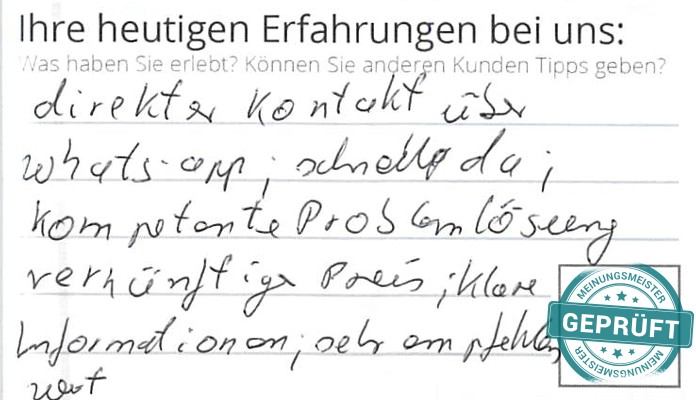 Ihre heutigen Erfahrungen bei uns:
Was haben Sie erlebt? Können Sie anderen Kunden Tipps geben?
direkter Kontakt über
whats-app; schnell da;
kompetente Problemlösung
vernünftige Preis; klare
Informationen; sehr empfehlens
wert
MEINUNGSMEISTER
GEPRÜFT
MEINUNGSMEISTER